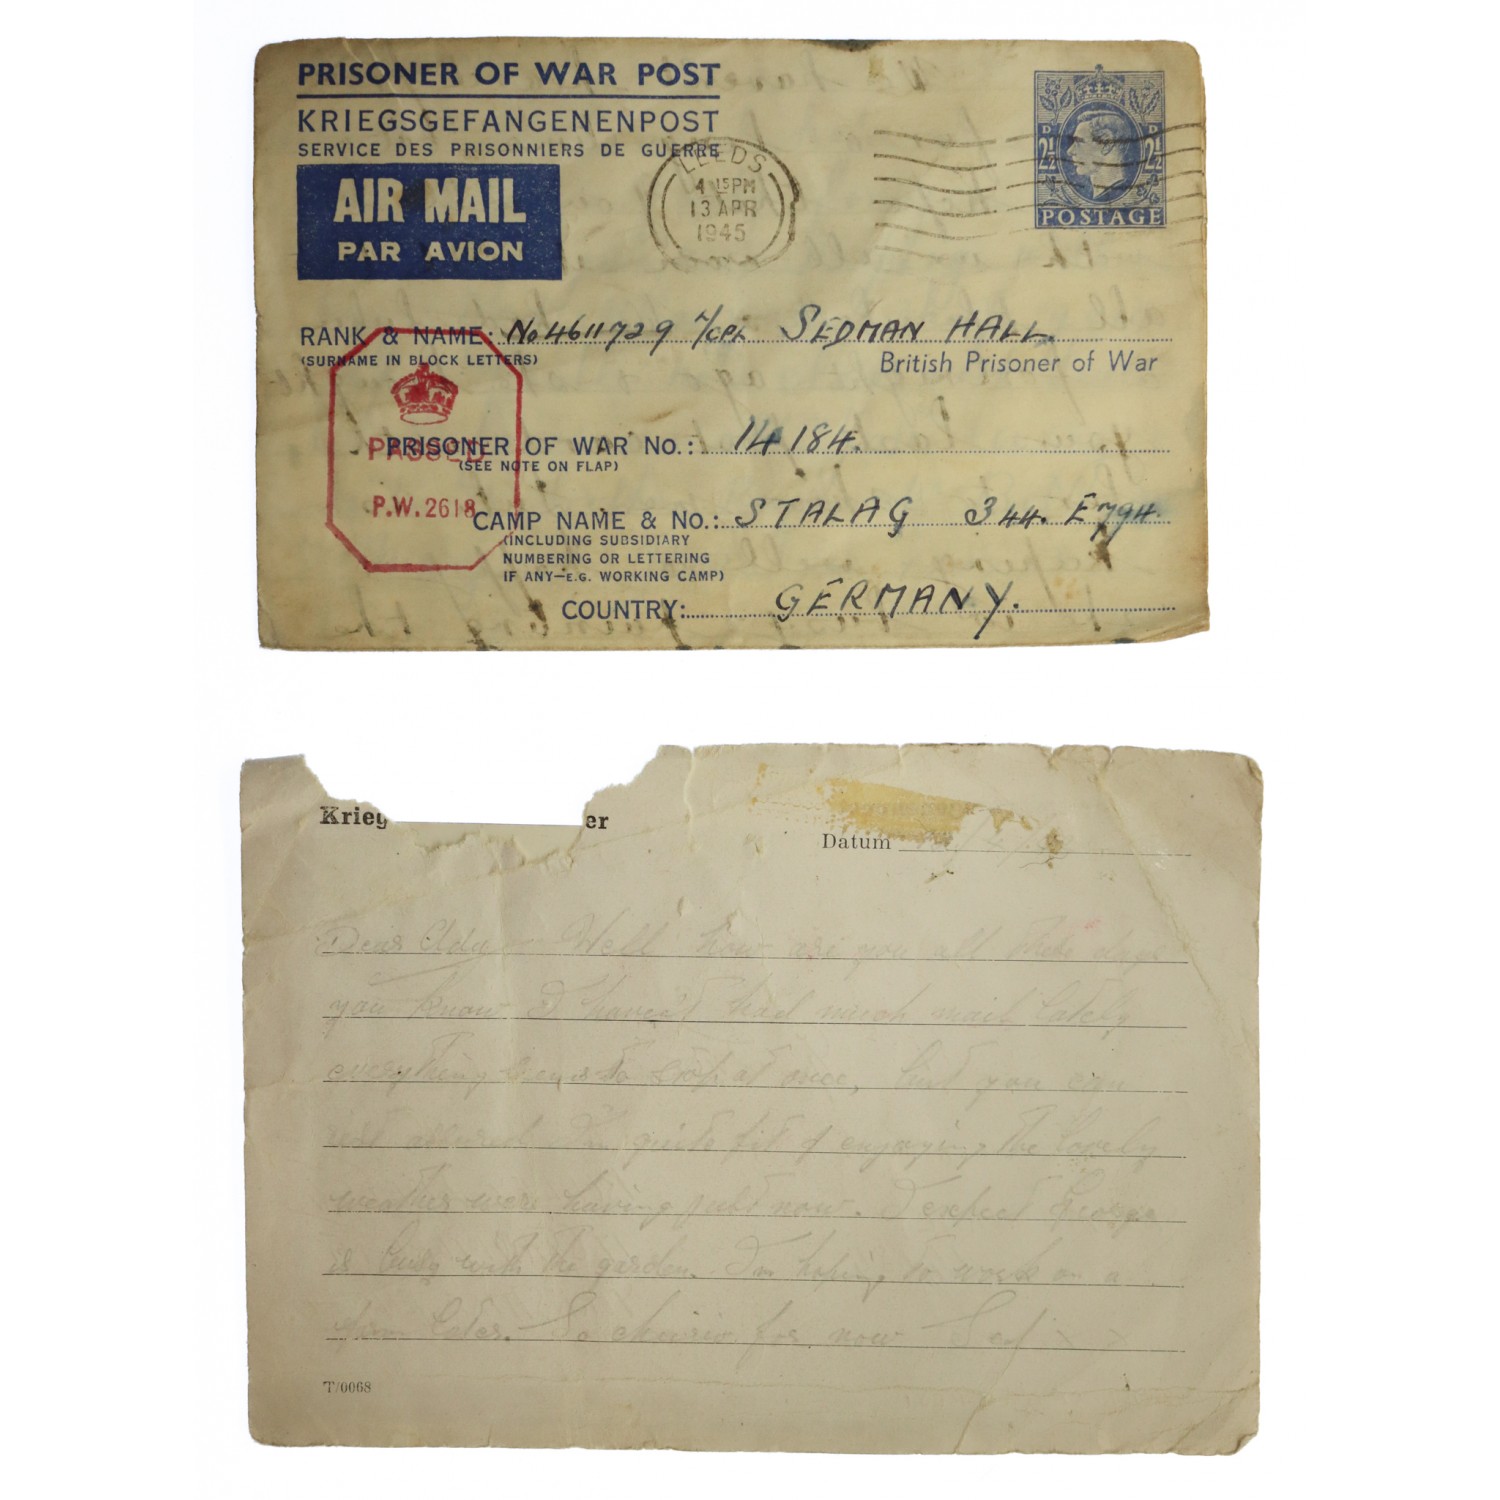 PRISONER OF WAR POST
KRIEGSGEFANGENENPOST
SERVICE DES PRISONNIERS DE GUERRE
AIR MAIL
PAR AVION
LEEDS
4 15 PM
13 APR
1945
D D
2½ 2½
POSTAGE
RANK & NAME: No 4611729 L/CPL SEDMAN HALL.
(SURNAME IN BLOCK LETTERS)
British Prisoner of War
PASSED
P.W. 2618
PRISONER OF WAR No.: 14184.
(SEE NOTE ON FLAP)
CAMP NAME & No.: STALAG 344. E794.
(INCLUDING SUBSIDIARY
NUMBERING OR LETTERING
IF ANY—E.G. WORKING CAMP)
COUNTRY: GERMANY.
Krieg er
Datum
Dear Ada Well how are you all these days
you know I haven't had much mail lately
everything seems to stop at once, but you can
rest assured I'm quite fit & enjoying the lovely
weather were having just now. I expect George
is busy with the garden. I'm hoping to work on a
farm later. So cheerio for now Sed
T/0068